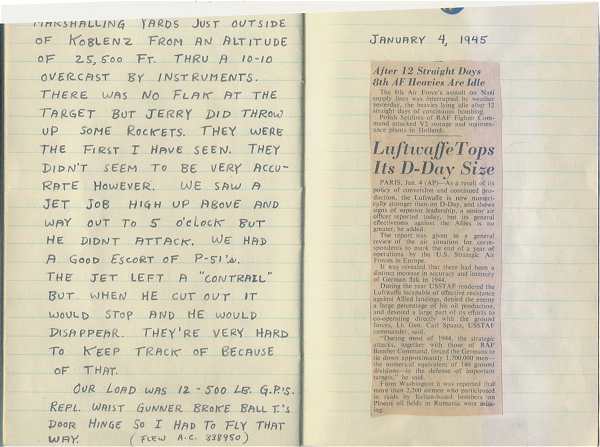 MARSHALLING YARDS JUST OUTSIDE
OF KOBLENZ FROM AN ALTITUDE
OF 25,500 FT. THRU A 10-10
OVERCAST BY INSTRUMENTS.
THERE WAS NO FLAK AT THE
TARGET BUT JERRY DID THROW
UP SOME ROCKETS. THEY WERE
THE FIRST I HAVE SEEN. THEY
DIDN'T SEEM TO BE VERY ACCU-
RATE HOWEVER. WE SAW A
JET JOB HIGH UP ABOVE AND
WAY OUT TO 5 O'CLOCK BUT
HE DIDNT ATTACK. WE HAD
A GOOD ESCORT OF P-51's.
THE JET LEFT A "CONTRAIL"
BUT WHEN HE CUT OUT IT
WOULD STOP AND HE WOULD
DISAPPEAR. THEY'RE VERY HARD
TO KEEP TRACK OF BECAUSE
OF THAT.
OUR LOAD WAS 12-500 LB. G.P.'S.
REPL. WAIST GUNNER BROKE BALL T.'S
DOOR HINGE SO I HAD TO FLY THAT
WAY. (FLEW A.C. 338950)
JANUARY 4, 1945
After 12 Straight Days
8th AF Heavies Are Idle
The 8th Air Force's assault on Nazi
supply lines was interrupted by weather
yesterday, the heavies lying idle after 12
straight days of continuous bombing.
Polish Spitfires of RAF Fighter Com-
mand attacked V2 storage and mainten-
ance plants in Holland.
Luftwaffe Tops
Its D-Day Size
PARIS, Jan. 4 (AP)—As a result of its
policy of conversion and continued pro-
duction, the Luftwaffe is now numeri-
cally stronger than on D-Day, and shows
signs of superior leadership, a senior air
officer reported today, but its general
effectiveness against the Allies is no
greater, he added.
The report was given in a general
review of the air situation for corre-
spondents to mark the end of a year of
operations by the U.S. Strategic Air
Forces in Europe.
It was revealed that there had been a
distinct increase in accuracy and intensity
of German flak in 1944.
During the year USSTAF rendered the
Luftwaffe incapable of effective resistance
against Allied landings, denied the enemy
a large percentage of his oil production,
and devoted a large part of its efforts to
co-operating directly with the ground
forces, Lt. Gen. Carl Spaatz, USSTAF
commander, said.
"During most of 1944, the strategic
attacks, together with those of RAF
Bomber Command, forced the Germans to
tie down approximately 1,700,000 men—
the numerical equivalent of 140 ground
divisions—in the defense of important
targets," he said.
From Washington it was reported that
more than 2,200 airmen who participated
in raids by Italian-based bombers on
Ploesti oil fields in Rumania were miss-
ing.